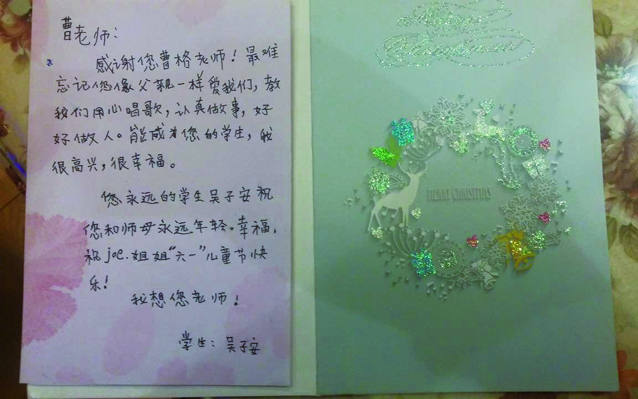 曹老师：
感谢您曹格老师！最难
忘记您像父親一样爱我们，教
我们用心唱歌，认真做事，好
好做人。能成为您的学生，我
很高兴，很幸福。
您永远的学生吴子安祝
您和师母永远年轻。幸福。
祝joe.姐姐“六一”儿童节快
乐！
我想您老师！
学生：吴子安
Merry
Christmas
MERRY CHRISTMAS